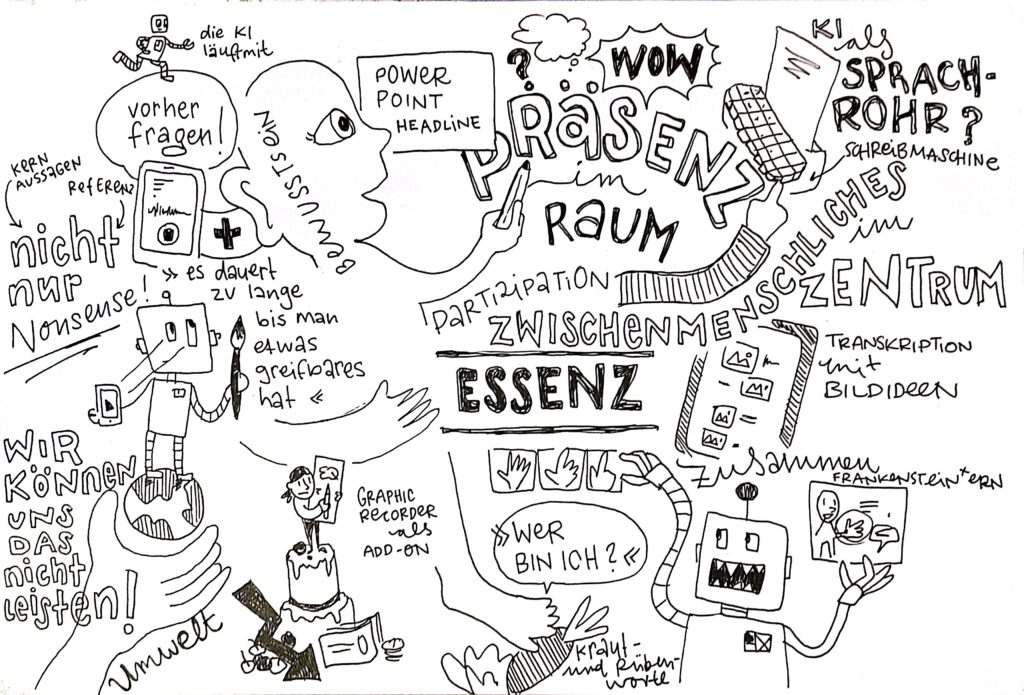 die KI
läuft mit
vorher
fragen!
KERN
AUSSAGEN
REFERENZ
nicht
nur
Nonsense!
BEWUSSTSEIN
POWER
POINT
HEADLINE
?
WOW
PRÄSENZ
im
RAUM
KI als
SPRACH-
ROHR?
SCHREIBMASCHINE
» es dauert
zu lange
bis man
etwas
greifbares
hat «
PARTIZIPATION
ZWISCHENMENSCHLICHES
im
ZENTRUM
ESSENZ
TRANSKRIPTION
mit
BILDIDEEN
WIR
KÖNNEN
UNS
DAS
nicht
leisten!
Umwelt
GRAPHIC
RECORDER
als
ADD-ON
»WER
BIN ICH?«
zusammen
FRANKENSTEIN+ERN
Kraut-
und Rüben-
worte